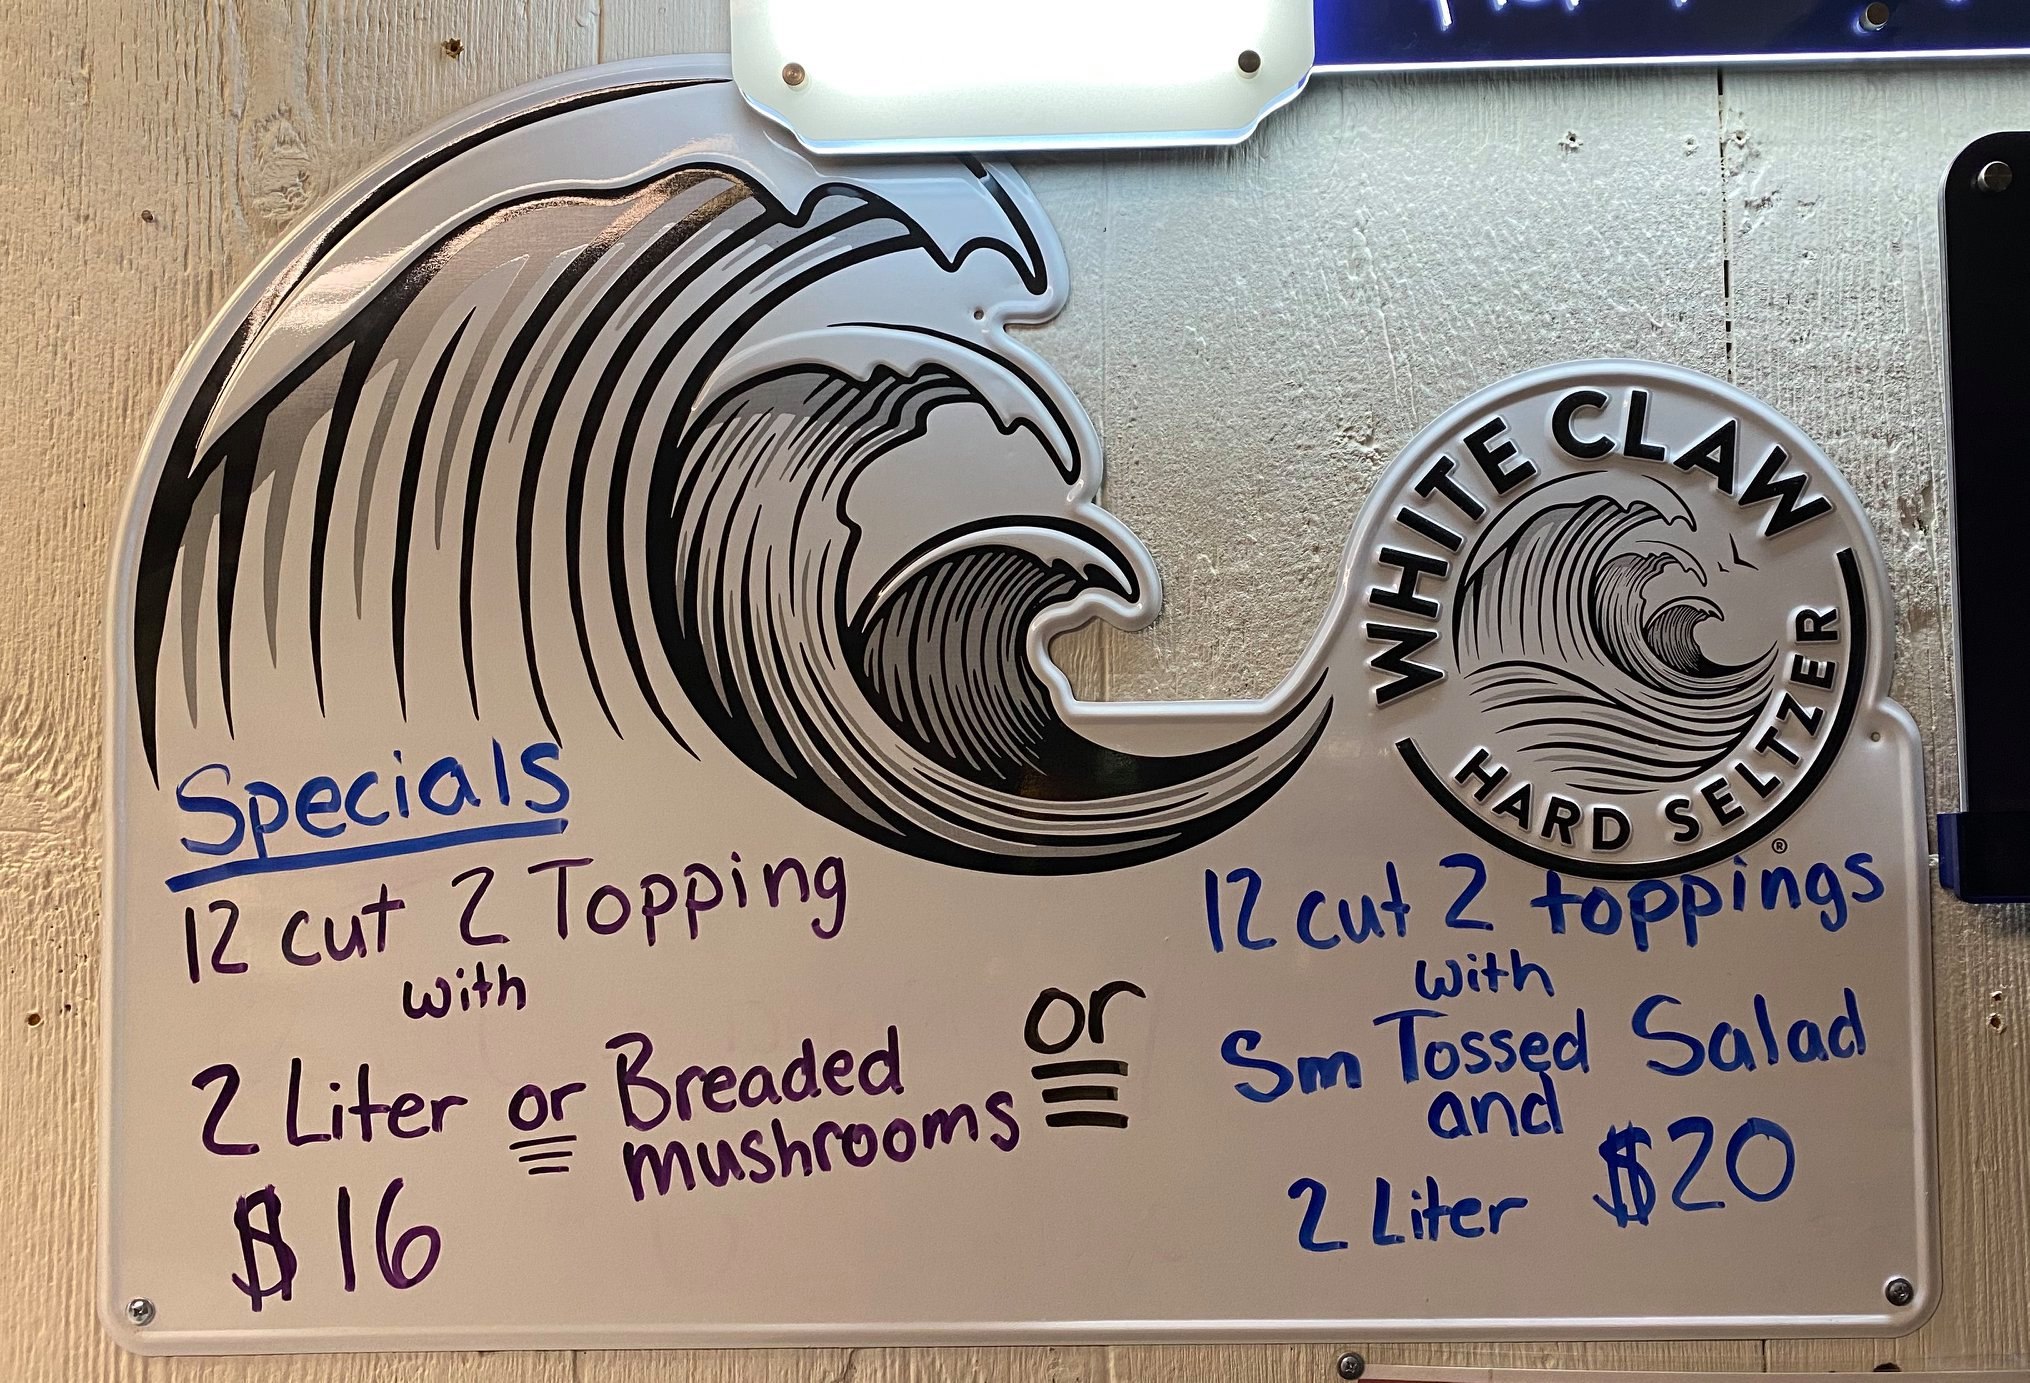 WHITE CLAW
HARD SELTZER
®
Specials
12 cut 2 Topping
with
2 Liter or Breaded
mushrooms
$16
or
12 cut 2 toppings
with
Sm Tossed Salad
and
2 Liter $20